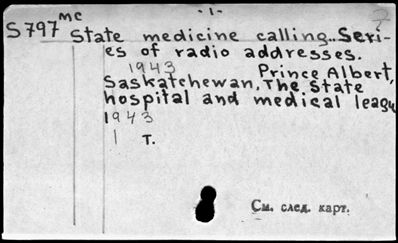 -1-
S797mc State medicine calling..Seri-
es of radio addresses.
1943 Prince Albert,
Saskatchewan, The State
hospital and medical league
1943
1 T.
См. след. карт.